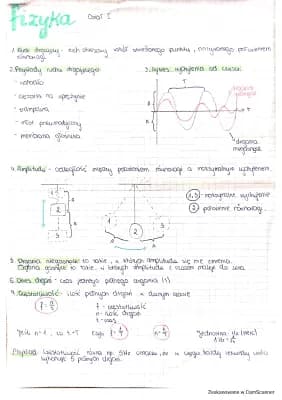 fizyka
Dział I
1. Ruch drgający - ruch okresowy wokół ustalonego punktu, nazywanego położeniem
równowagi.
2. Przykłady ruchu drgającego:
- wahadło
- ciężarek na sprężynie
- młot pneumatyczny
- membrana głośnika
3. Wykres wychylenia od czasu:
T
A
t
drgania
gasnące
drgania
niegasnące
4. Amplituda - odległość między położeniem równowagi a maksymalnym wychyleniem.
1
2
3
A
A
1
2
3
A
A
1,3 - maksymalne wychylenie
2 położenie równowagi
5. Drgania niegasnące to takie, w których amplituda się nie zmienia.
Drgania gasnące to takie, w których amplituda z czasem maleje do zera.
6. Okres drgań - czas jednego pełnego drgania (T)
7. Częstotliwość - ilość pełnych drgań w danym czasie
f = n/t
f - częstotliwość
n - ilość drgań
t - czas
Jeśli n=1, to t=T
czyli f=1/T
Jednostka: Hz (herc)
Przykład: częstotliwość równa np. 5Hz oznacza, że w ciągu każdej sekundy ciało
wykonuje 5 pełnych drgań.
Zeskanowane w CamScanner